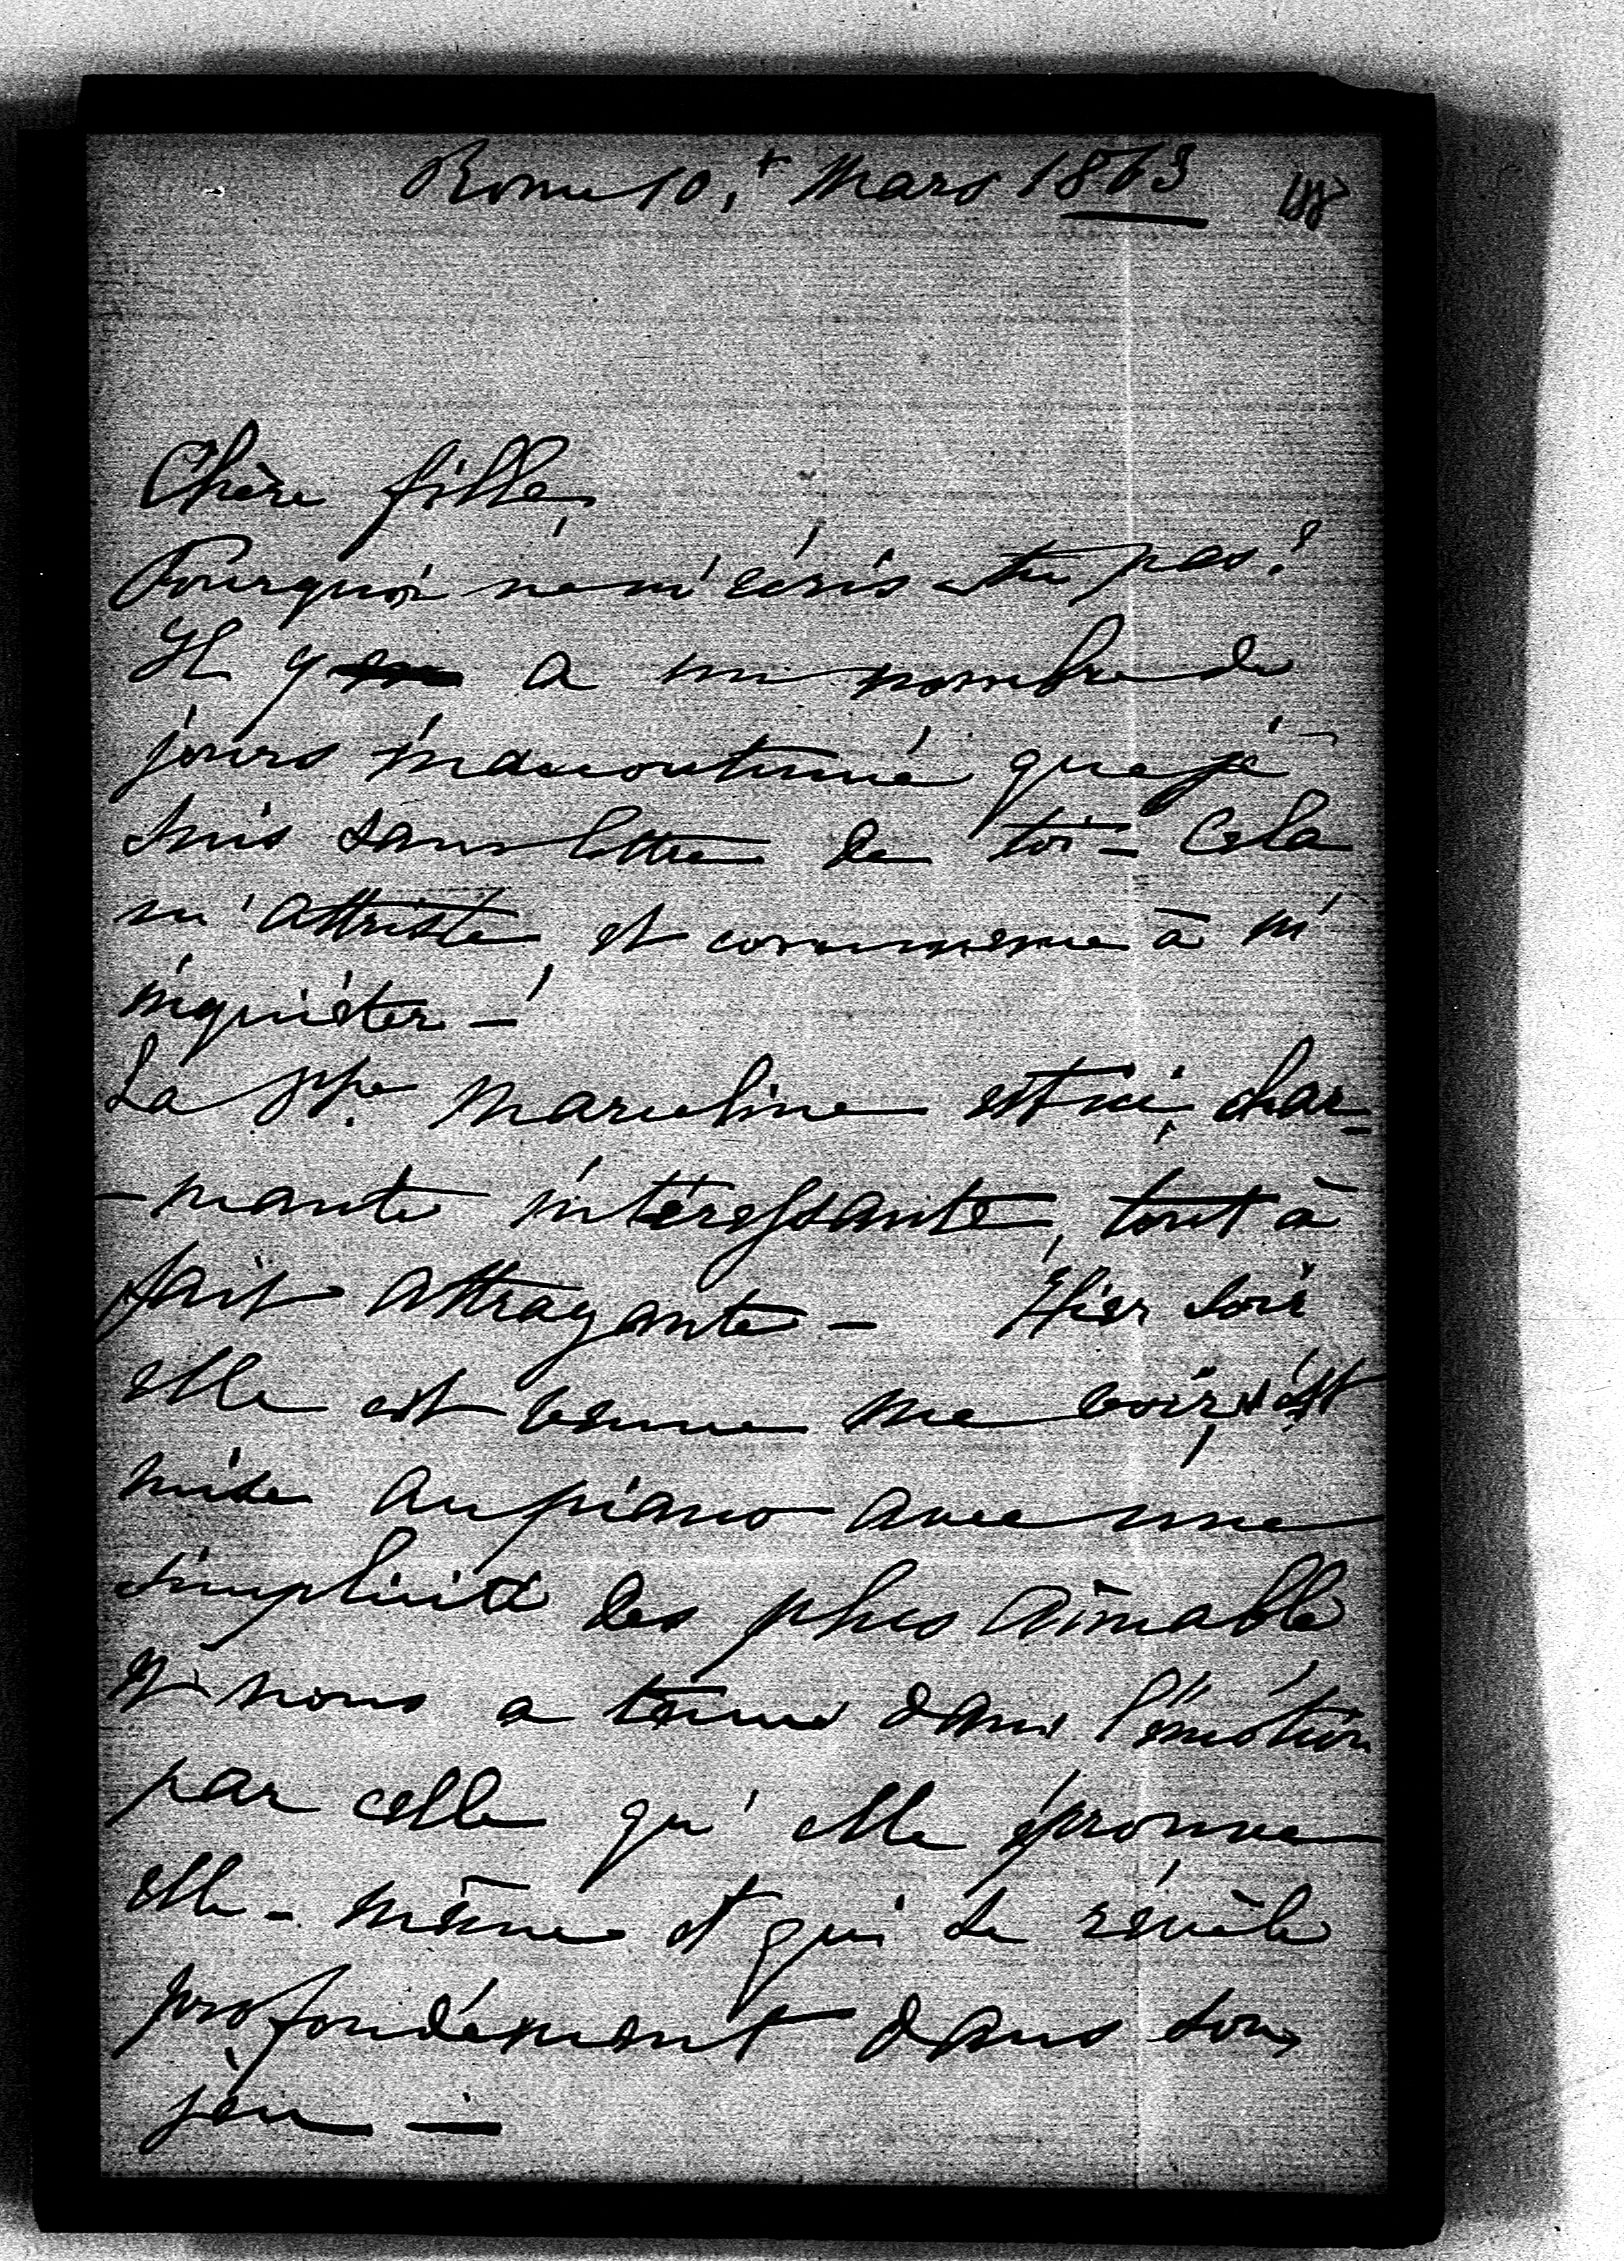 Rome 10, Mars 1863
Chère fille,
Pourquoi ne m'écris-tu pas?
Il y a un nombre de
jours inaccoutumé que je
suis sans lettre de toi – Cela
m'attriste, et commence à m'
inquiéter –
La Psse Marceline est ici, char-
-mante intéressante, tout à
fait attrayante – Hier soir
elle est venue me voir, s'est
mise au piano avec une
simplicité des plus aimable
& nous a tenus dans l'émotion
par celle qu'elle éprouve
elle-même et qui se révèle
profondément dans son
jeu –